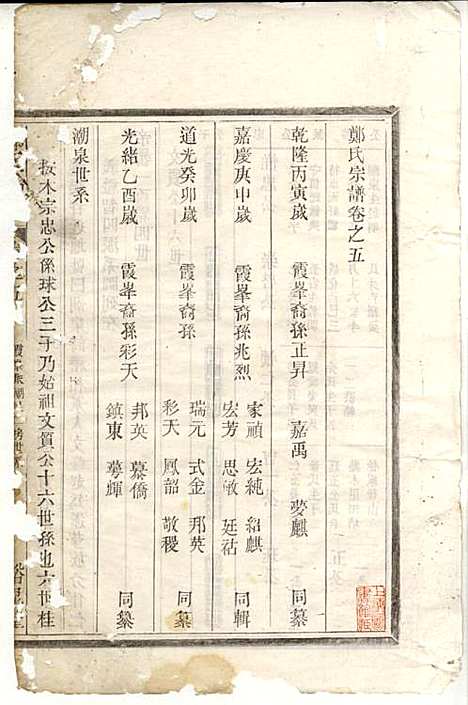 鄭氏宗譜卷之五
乾隆丙寅歲 霞峯裔孫正昇 嘉禹 夢麒 同纂
嘉慶庚申歲 霞峯裔孫兆烈 家禎 宏純 紹麒 宏芳 思敏 廷祜 同輯
道光癸卯歲 霞峯裔孫 瑞元 式金 邦英 彩天 鳳韶 敬稷 同纂
光緒乙酉歲 霞峯裔孫彩天 邦英 慕僑 鎮東 蕚輝 同纂
潮泉世系
按本宗忠公係球公三子乃始祖文質公十六世孫也六世桂